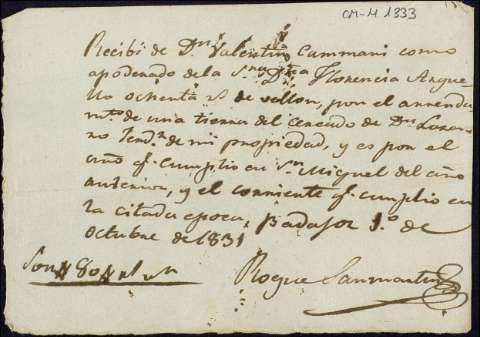 CM-M 1333
Recibi de Dn Valentin Cammani como
apoderado de la Sra Dña Florencia Argue-
llo ochenta rs de vellon, por el arrenda
mto de una tierra del cercado de Dn Loren
zo de mi propiedad, y es por el
año qe cumplio en Sn Miguel del año
anterior, y el corriente qe cumplio en
la citada epoca, Badajoz 1.º de
octubre de 1831
Son 80 rs vn
Roque Sanmartin